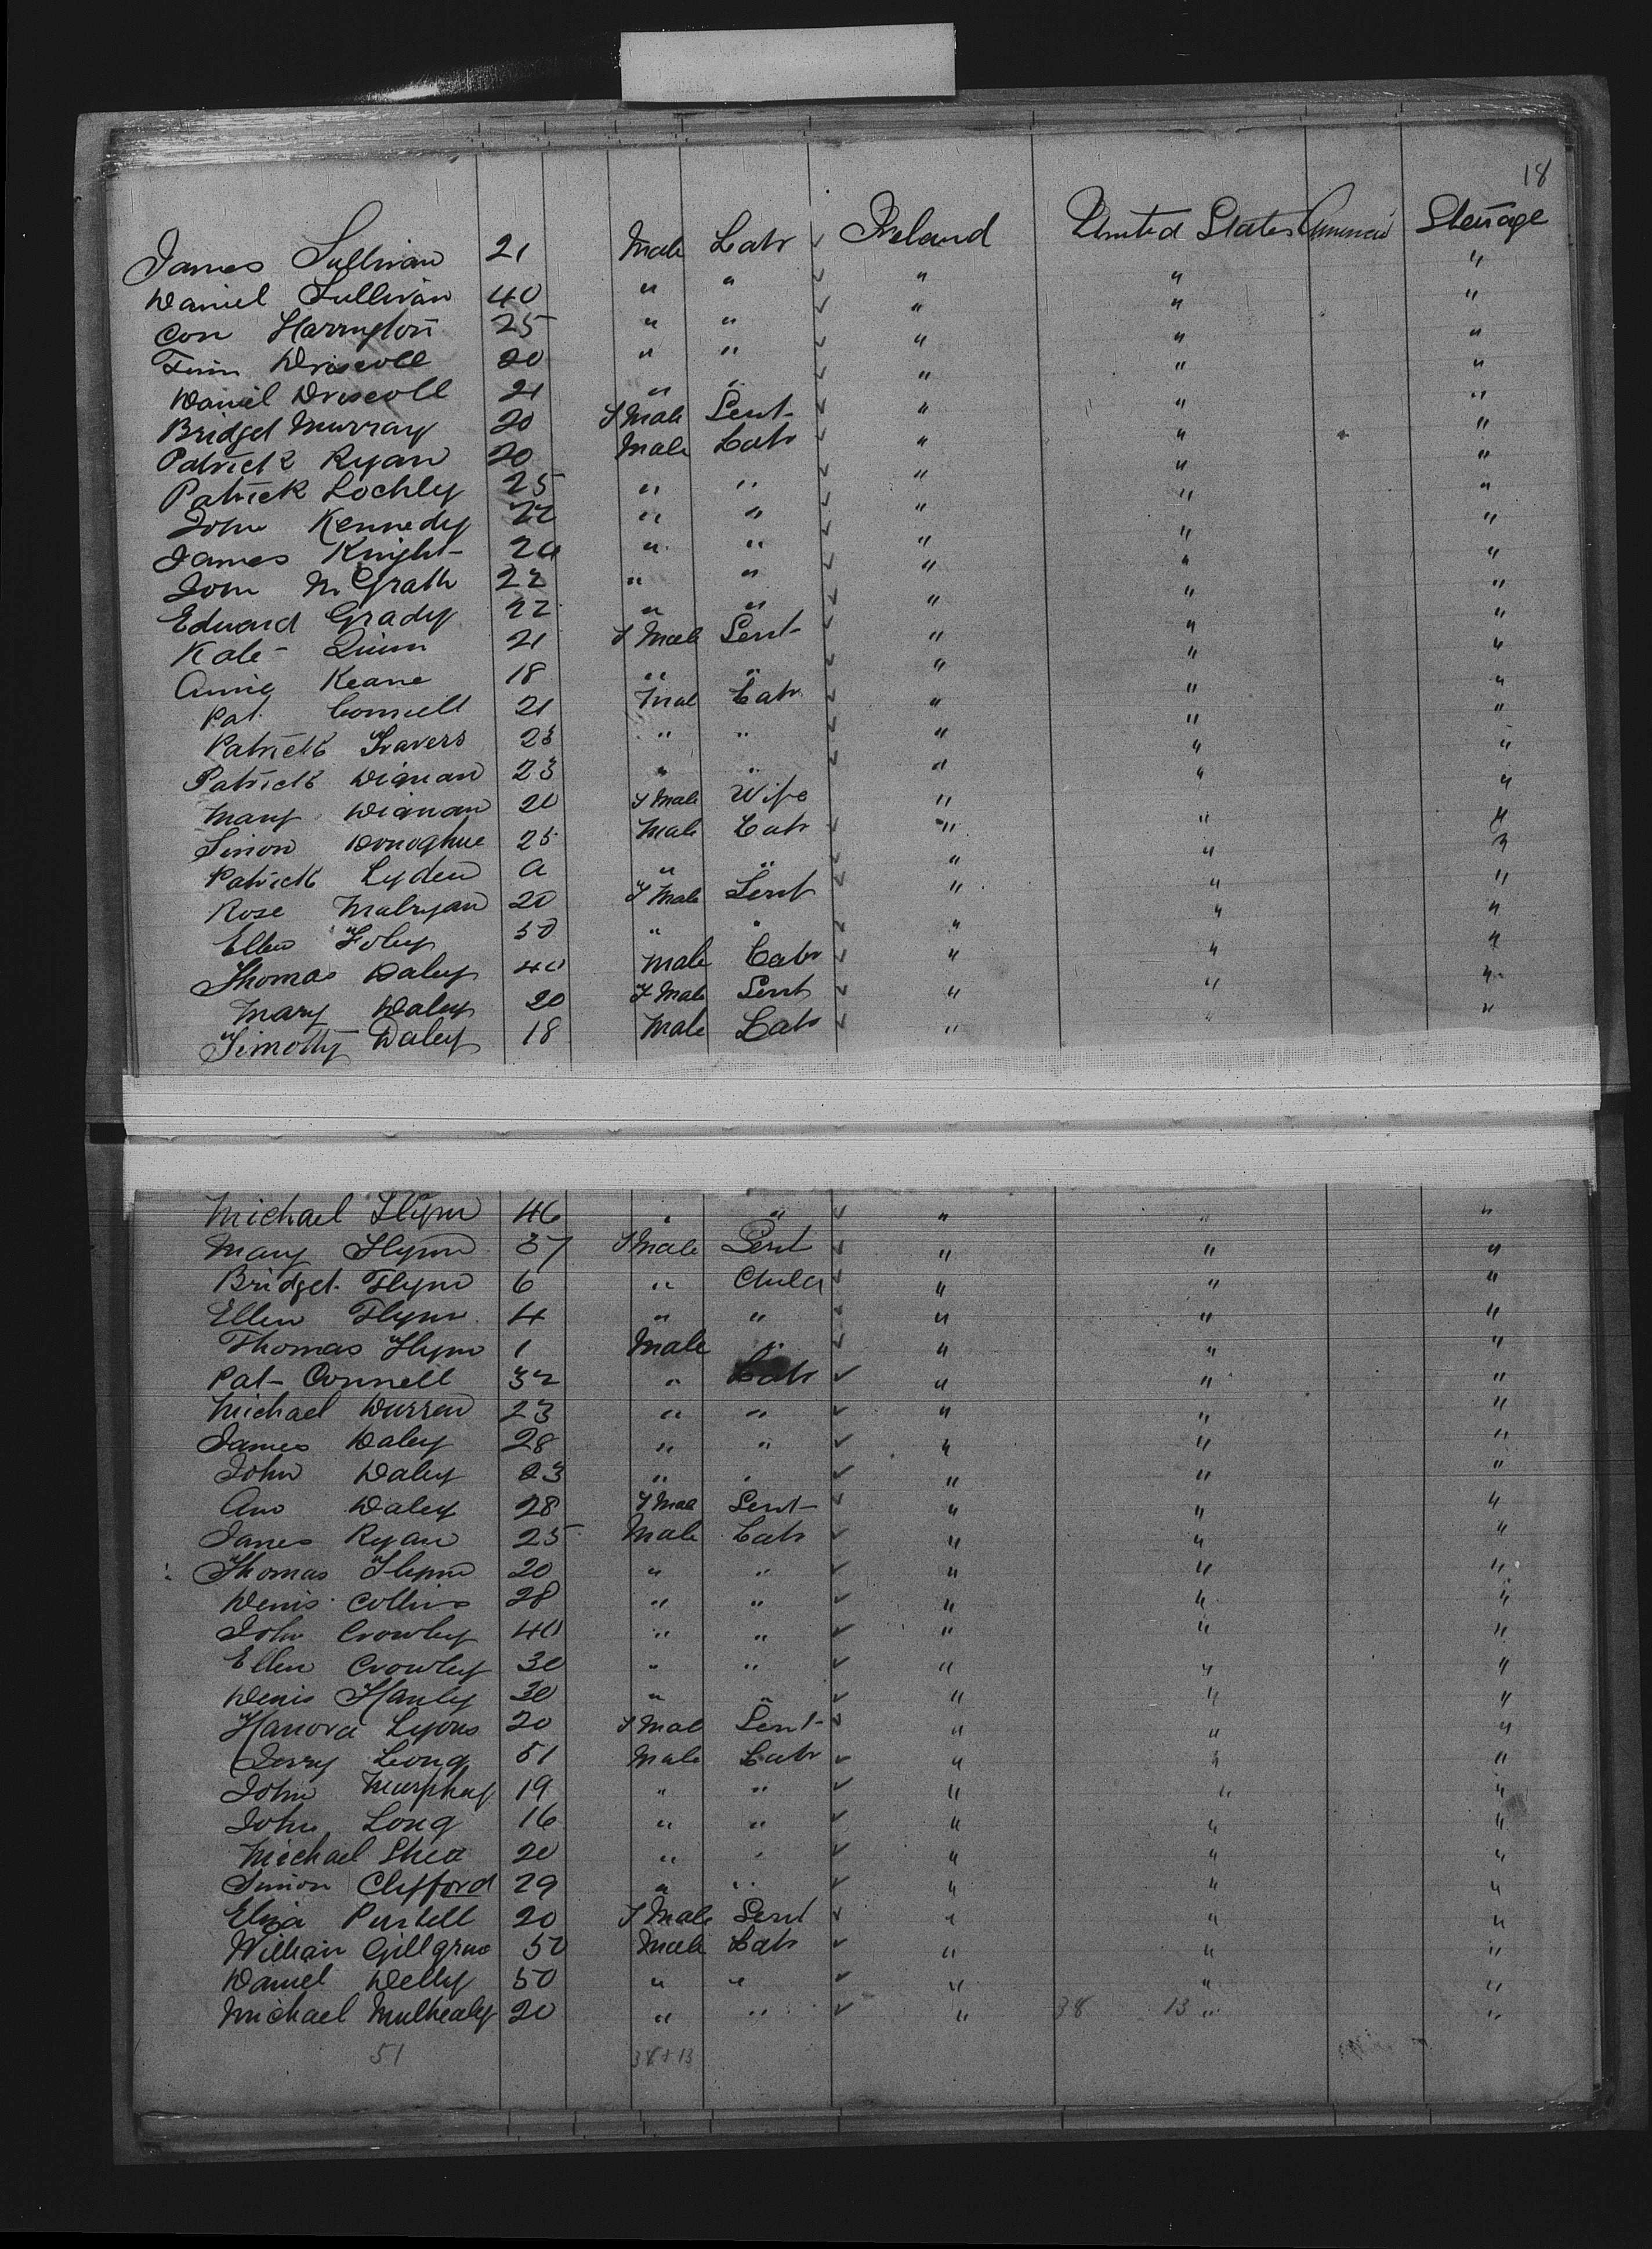 18
James Sullivan 21 Male Labr ✓ Ireland United States America Steirage
Daniel Sullivan 40 " " ✓ " " "
Con Harrington 25 " " ✓ " " "
Tim Driscoll 20 " " ✓ " " "
Daniel Driscoll 21 " " ✓ " " "
Bridget Murray 20 F Male Servt ✓ " " "
Patrick Ryan 20 Male Labr ✓ " " "
Patrick Lochly 25 " " ✓ " " "
John Kennedy 22 " " ✓ " " "
James Knight 20 " " ✓ " " "
John McGrath 22 " " ✓ " " "
Edward Grady 22 " " ✓ " " "
Kate Quinn 21 F Male Servt ✓ " " "
Annie Keane 18 " " ✓ " " "
Pat Connell 21 Male Labr ✓ " " "
Patrick Travers 23 " " ✓ " " "
Patrick Dignan 23 " " ✓ " " "
Mary Dignan 20 F Male Wife " " "
Simon Donoghue 25 Male Labr ✓ " " "
Patrick Lyden " " ✓ " " "
Rose Mulryan 20 F Male Servt ✓ " " "
Ellen Foley 50 " " ✓ " " "
Thomas Daley 40 Male Labr ✓ " " "
Mary Daley 20 F Male Servt ✓ " " "
Timothy Daley 18 Male Labr ✓ " " "
Michael Flynn 46 " " ✓ " " "
Mary Flynn 37 F Male Servt ✓ " " "
Bridget Flynn 6 " Child ✓ " " "
Ellen Flynn 4 " " ✓ " " "
Thomas Flynn 1 Male " ✓ " " "
Pat Connell 32 " Labr ✓ " " "
Michael Durren 23 " " ✓ " " "
James Daley 28 " " ✓ " " "
John Daley 23 " " ✓ " " "
Ann Daley 28 F Male Servt ✓ " " "
James Ryan 25 Male Labr ✓ " " "
Thomas Flynn 20 " " ✓ " " "
Denis Collins 28 " " ✓ " " "
John Crowley 40 " " ✓ " " "
Ellen Crowley 30 " " ✓ " " "
Denis Hanley 30 " " ✓ " " "
Hanora Lyons 20 F Male Servt ✓ " " "
Jerry Long 51 Male Labr ✓ " " "
John Murphy 19 " " ✓ " " "
John Long 16 " " ✓ " " "
Michael Shea 20 " " ✓ " " "
Simon Clifford 29 " " ✓ " " "
Eliza Purtell 20 F Male Servt ✓ " " "
William Gillgrue 50 Male Labr ✓ " " "
Daniel Delly 50 " " ✓ " " "
Michael Mulhealy 20 " " ✓ " 38 13 " "
51 38+13